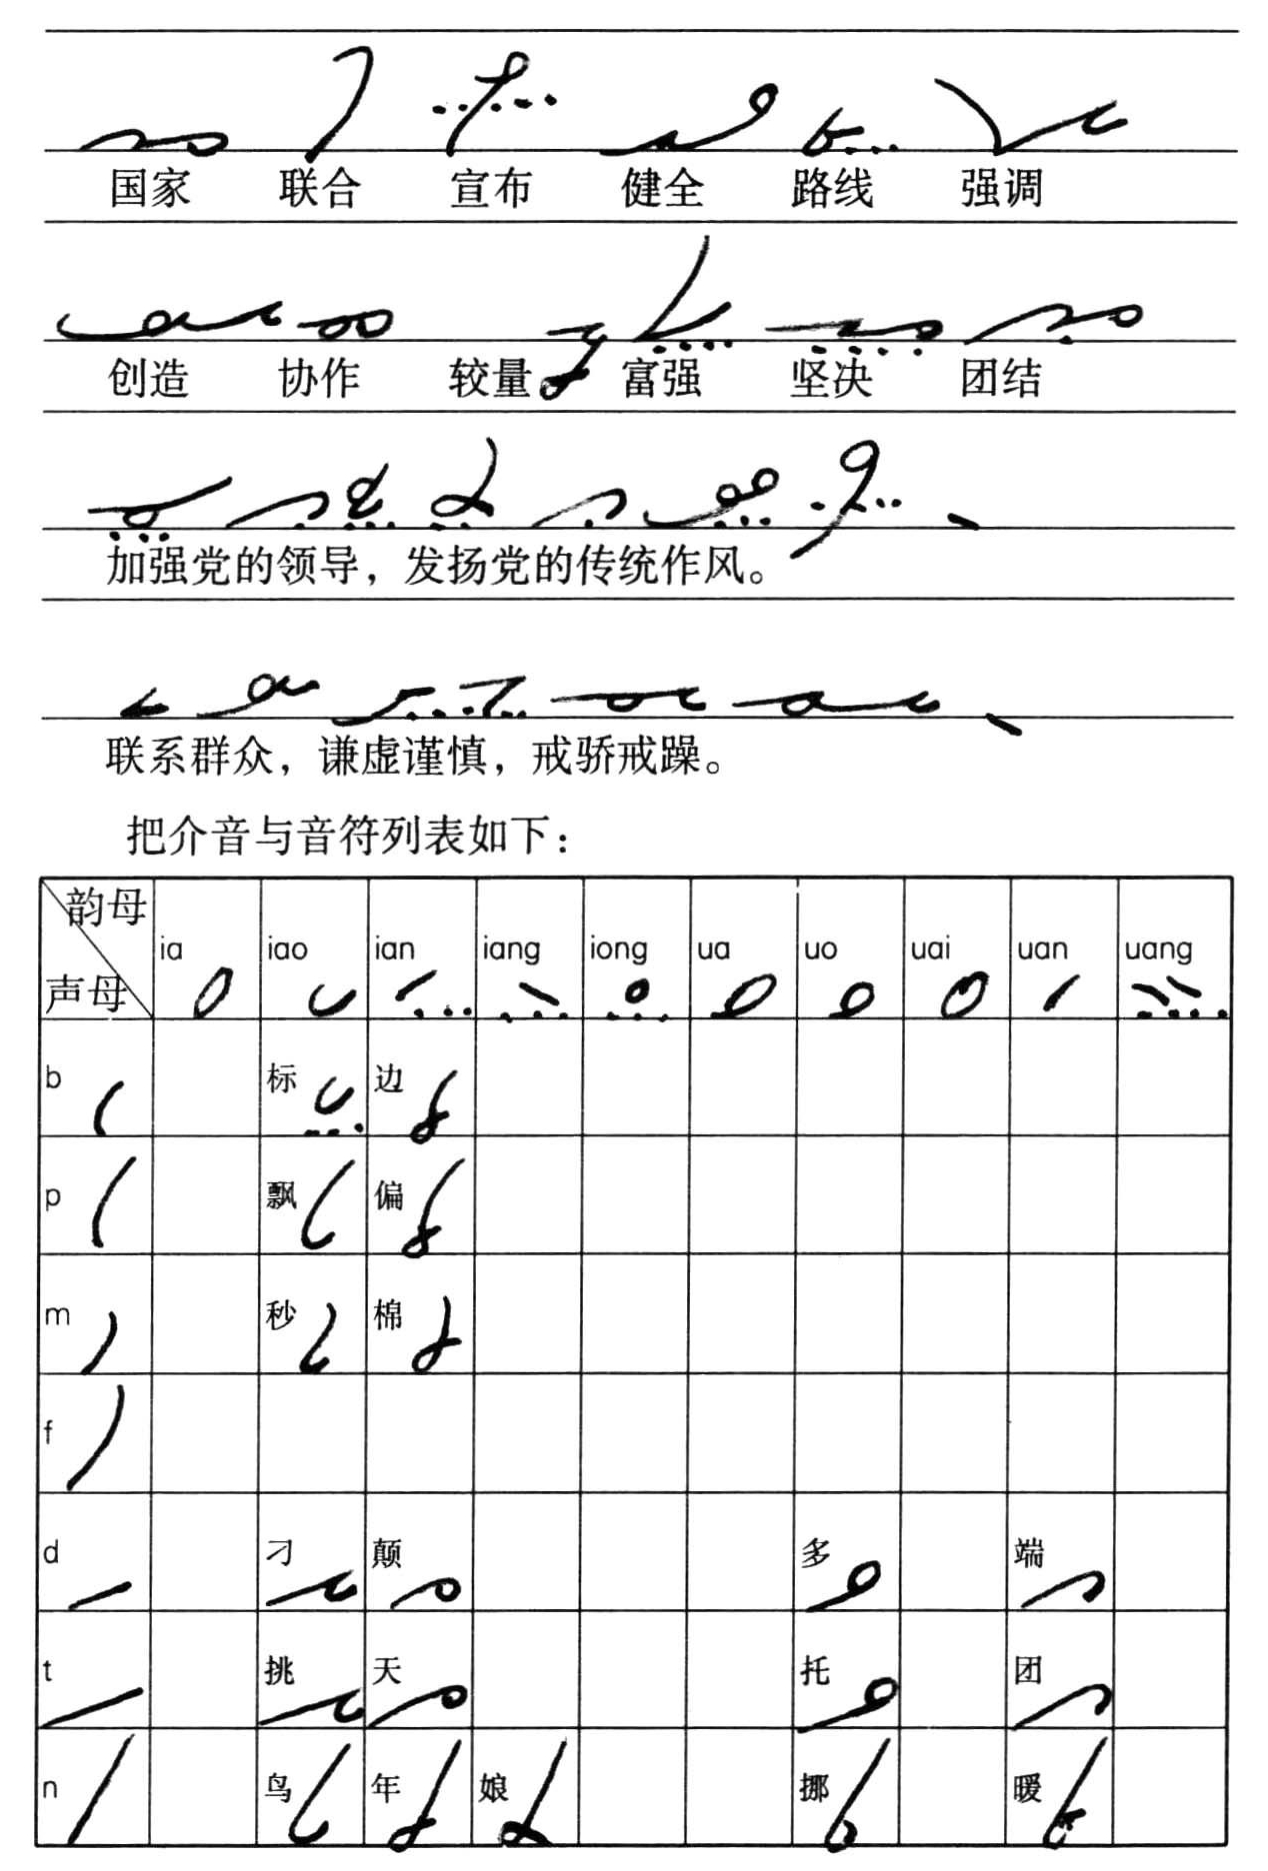 国家 联合 宣布 健全 路线 强调
创造 协作 较量 富强 坚决 团结
加强党的领导，发扬党的传统作风。
联系群众，谦虚谨慎，戒骄戒躁。
把介音与音符列表如下：
韵母 声母 ia iao ian iang iong ua uo uai uan uang
b 标 边
p 飘 偏
m 秒 棉
f
d 刁 颠 多 端
t 挑 天 托 团
n 鸟 年 娘 挪 暖